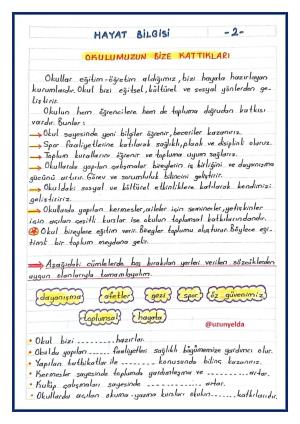 HAYAT BİLGİSİ -2-
OKULUMUZUN BİZE KATTIKLARI
Okullar eğitim-öğretim aldığımız, bizi hayata hazırlayan
kurumlardır. Okul bizi eğitsel, kültürel ve sosyal yönlerden ge-
liştirir.
Okulun hem öğrencilere hem de topluma doğrudan katkısı
vardır. Bunlar:
Okul sayesinde yeni bilgiler öğrenir, beceriler kazanırız.
Spor faaliyetlerine katılarak sağlıklı, planlı ve disiplinli oluruz.
Toplum kurallarını öğrenir ve topluma uyum sağlarız.
Okullarda yapılan çalışmalar bireylerin iş birliğini ve dayanışma
gücünü artırır. Görev ve sorumluluk bilincini geliştirir.
Okuldaki sosyal ve kültürel etkinliklere katılarak kendimizi
geliştiririz.
Okullarda yapılan kermesler, aileler için seminerler, yetişkinler
için açılan çeşitli kurslar ise okulun toplumsal katkılarındandır.
Okul bireylere eğitim verir. Bireyler toplumu oluşturur. Böylece eği-
timli bir toplum meydana gelir.
Aşağıdaki cümlelerde boş bırakılan yerleri verilen sözcüklerden
uygun olanlarıyla tamamlayalım.
dayanışma afetler gezi spor öz güvenimiz
toplumsal hayata
@uzunyelda
Okul bizi .......... hazırlar.
Okulda yapılan ...... faaliyetleri sağlıklı büyümemize yardımcı olur.
Yapılan tatbikatlar ile .......... konusunda bilinç kazanırız.
Kermesler sayesinde toplumda yardımlaşma ve .......... artar.
Kulüp çalışmaları sayesinde .......... artar.
Okullarda açılan okuma-yazma kursları okulun .......... katkılarıdır.